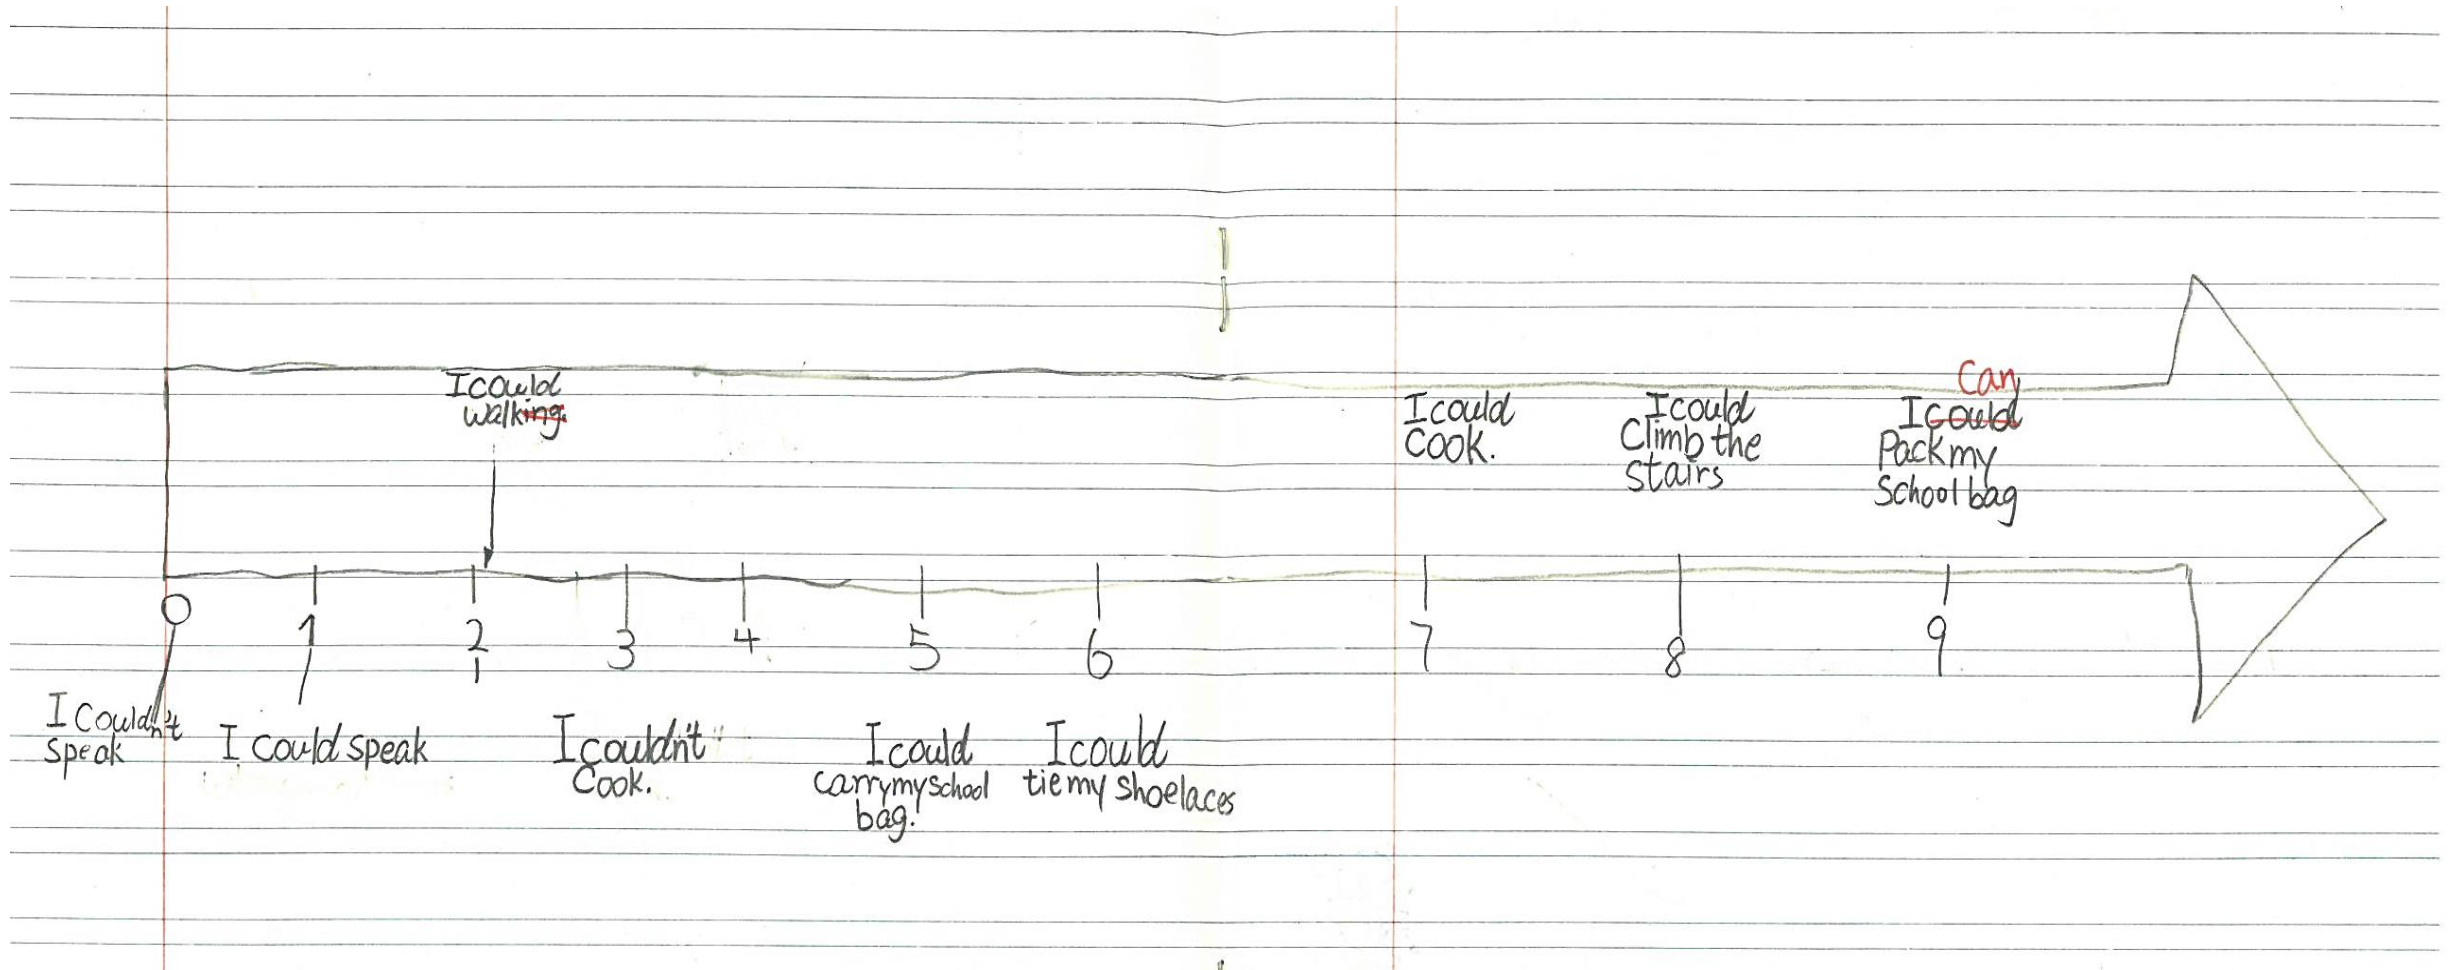 I could
walking.
Can
I could
Cook.
I could
Climb the
Stairs
I could
Pack my
School bag
0
1
2
3
4
5
6
7
8
9
I Couldn't
Speak
I Could speak
I couldn't
Cook.
I could
carry my school
bag.
I could
tie my shoelaces